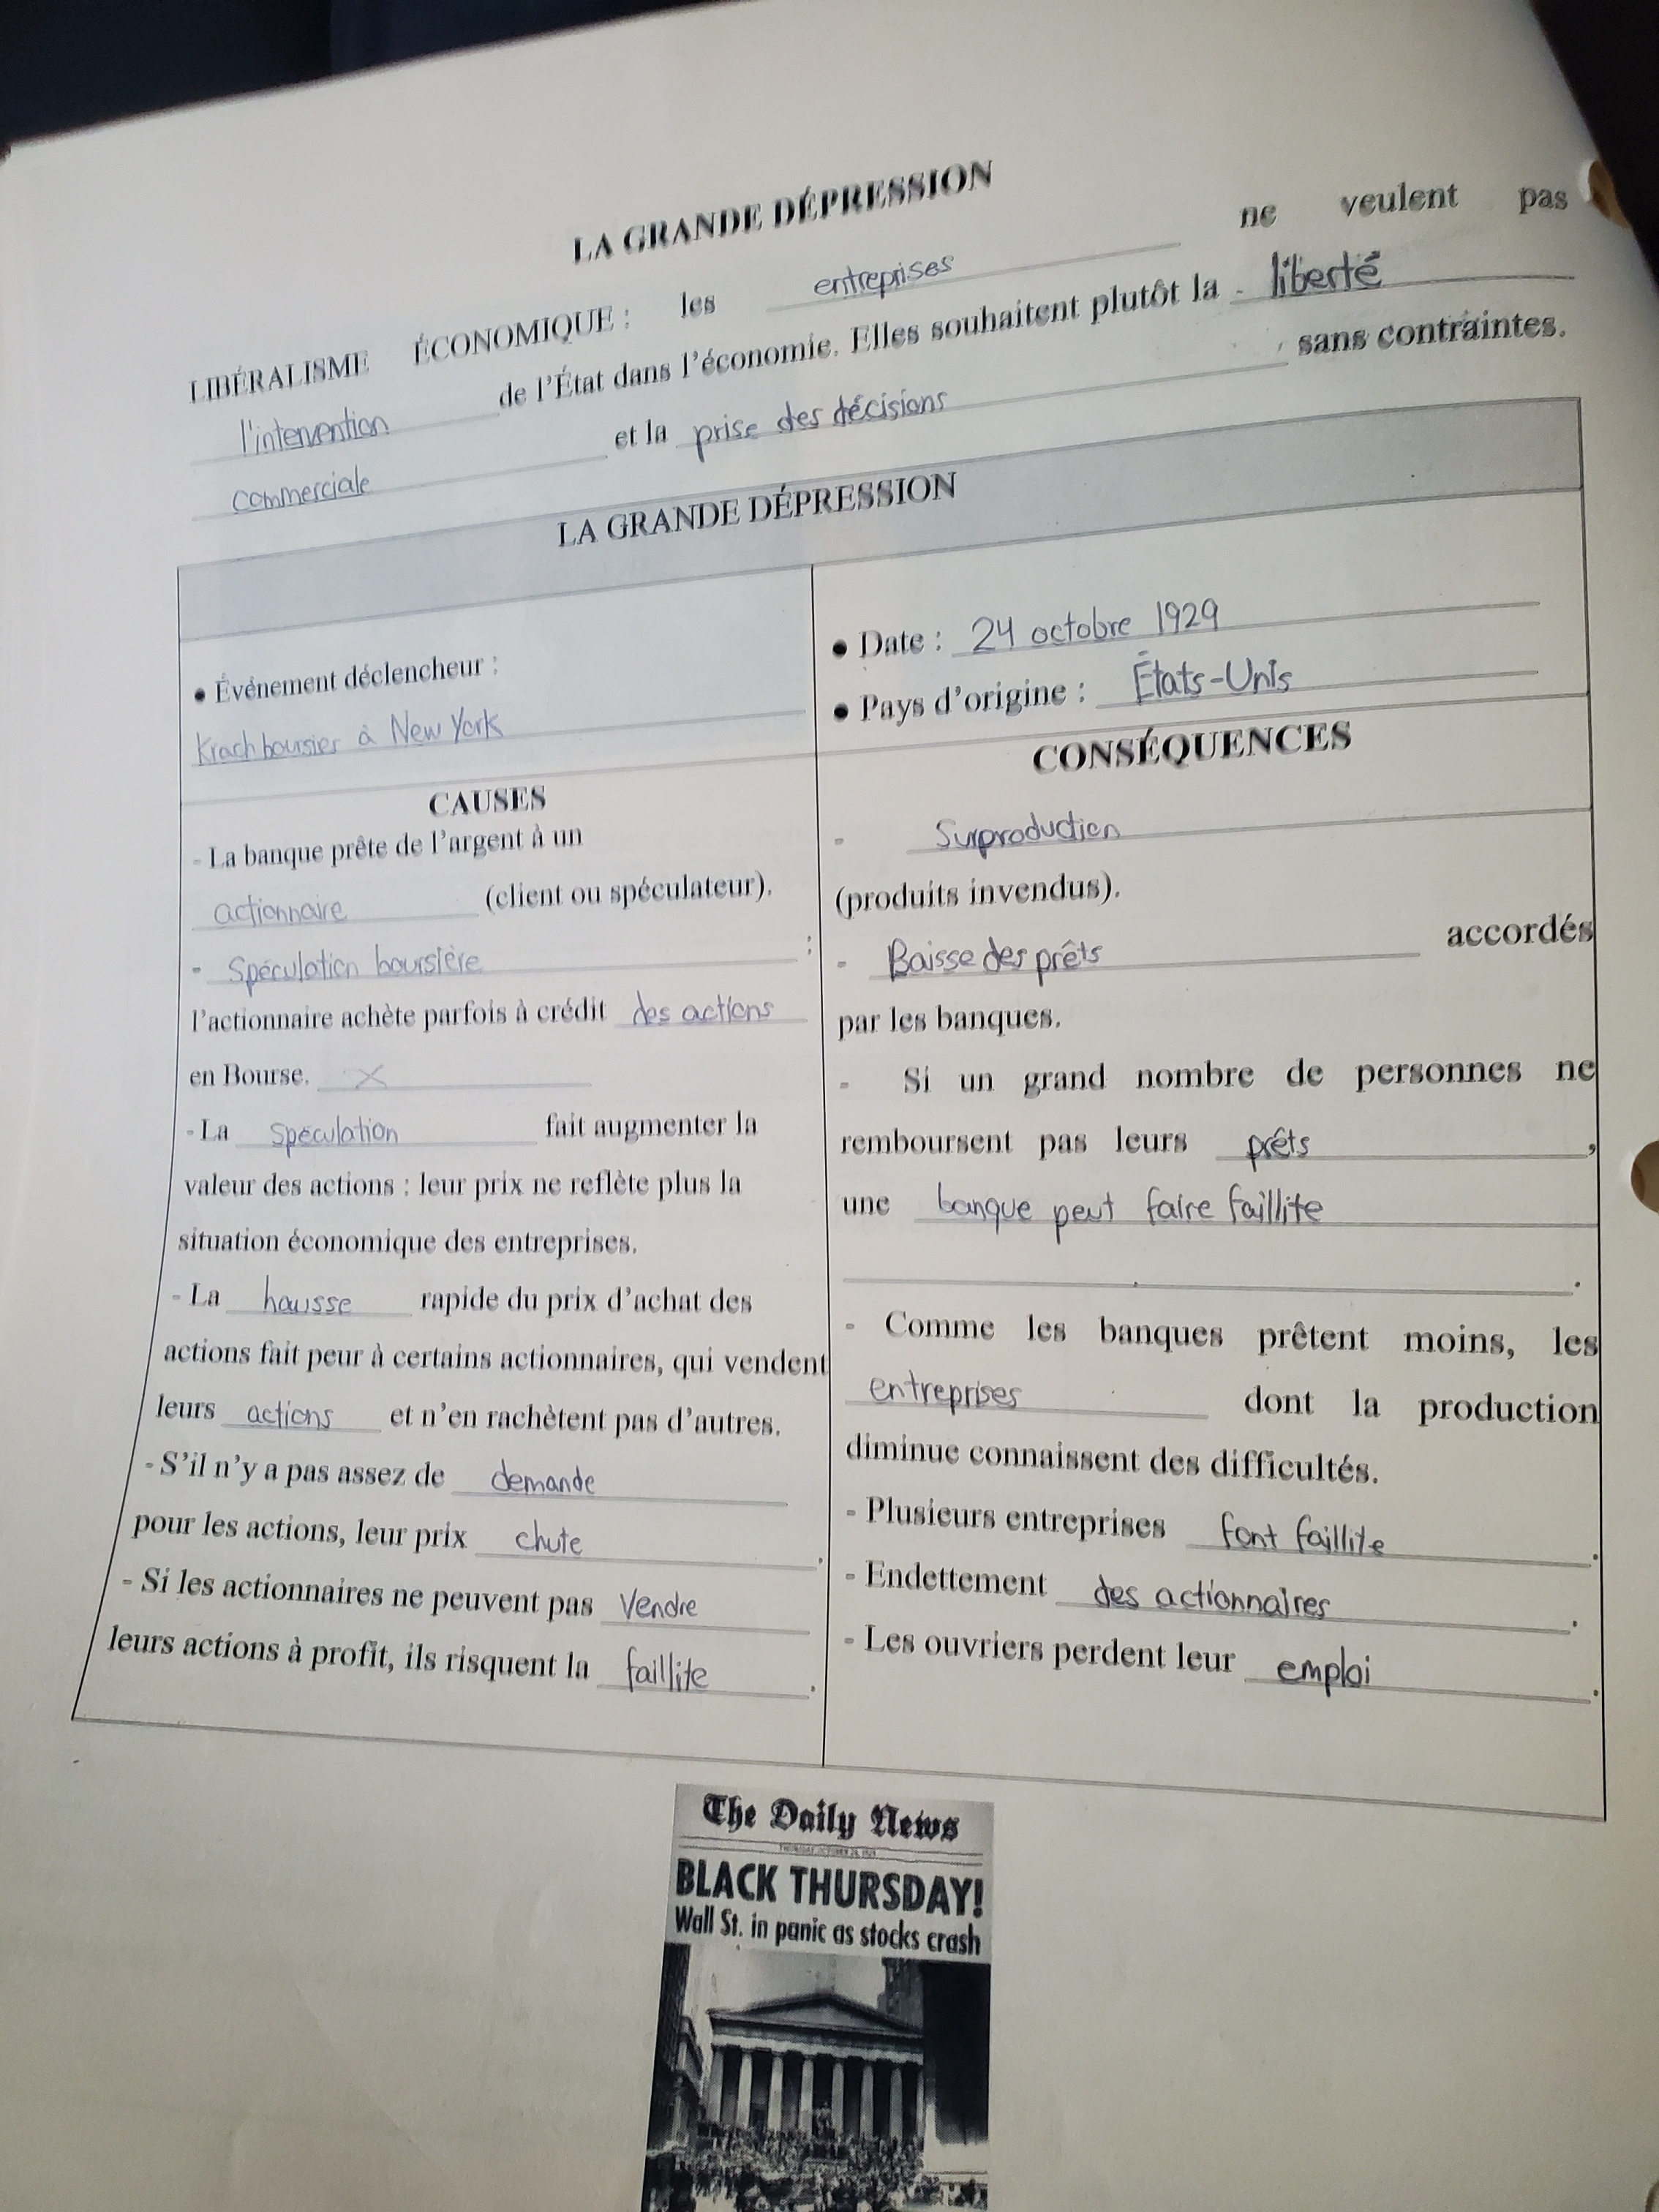 LA GRANDE DÉPRESSION
LIBÉRALISME ÉCONOMIQUE : les entreprises ne veulent pas
l'intervention de l'État dans l'économie. Elles souhaitent plutôt la liberté
commerciale et la prise des décisions sans contraintes.
LA GRANDE DÉPRESSION
• Événement déclencheur :
Krach boursier à New York
• Date : 24 octobre 1929
• Pays d'origine : États-Unis
CAUSES
- La banque prête de l'argent à un
actionnaire (client ou spéculateur).
- Spéculation boursière :
l'actionnaire achète parfois à crédit des actions
en Bourse. X
- La spéculation fait augmenter la
valeur des actions : leur prix ne reflète plus la
situation économique des entreprises.
- La hausse rapide du prix d'achat des
actions fait peur à certains actionnaires, qui vendent
leurs actions et n'en rachètent pas d'autres.
- S'il n'y a pas assez de demande
pour les actions, leur prix chute.
- Si les actionnaires ne peuvent pas vendre
leurs actions à profit, ils risquent la faillite.
CONSÉQUENCES
- Surproduction
(produits invendus).
- Baisse des prêts accordés
par les banques.
- Si un grand nombre de personnes ne
remboursent pas leurs prêts,
une banque peut faire faillite
.
- Comme les banques prêtent moins, les
entreprises dont la production
diminue connaissent des difficultés.
- Plusieurs entreprises font faillite.
- Endettement des actionnaires.
- Les ouvriers perdent leur emploi.
The Daily News
THURSDAY, OCTOBER 24, 1929
BLACK THURSDAY!
Wall St. in panic as stocks crash